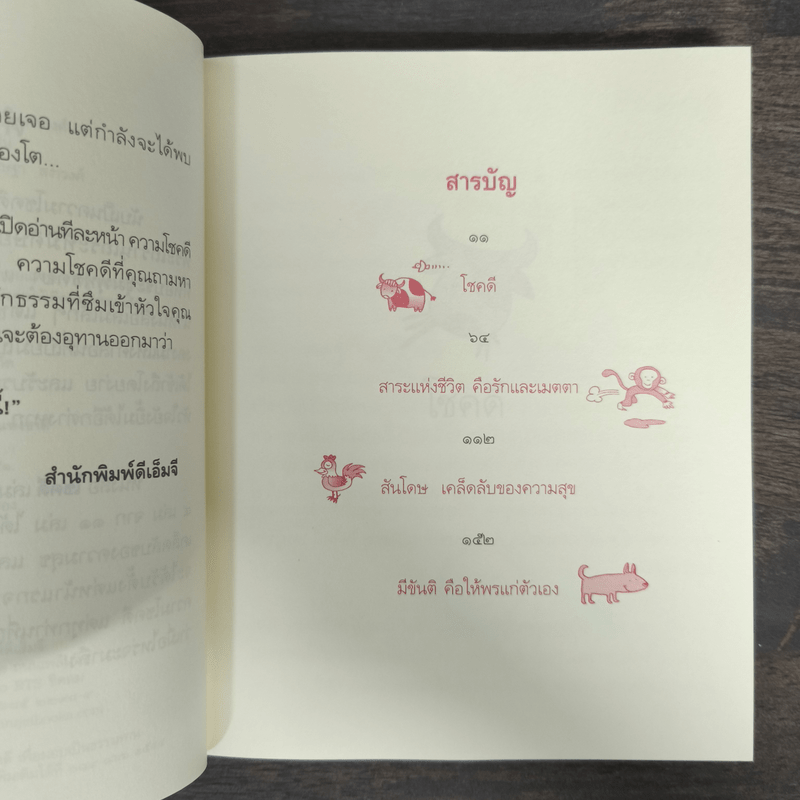 แต่กำลังจะได้พบ
เปิดอ่านทีละหน้า ความโชคดี
ความโชคดีที่คุณถามหา
ที่ซึมเข้าหัวใจคุณ
จะต้องอุทานออกมาว่า
สำนักพิมพ์ดีเอ็มจี
สารบัญ
๑๑
โชคดี
๖๔
สาระแห่งชีวิต คือรักและเมตตา
๑๑๒
สันโดษ เคล็ดลับของความสุข
๑๕๒
มีขันติ คือให้พรแก่ตัวเอง